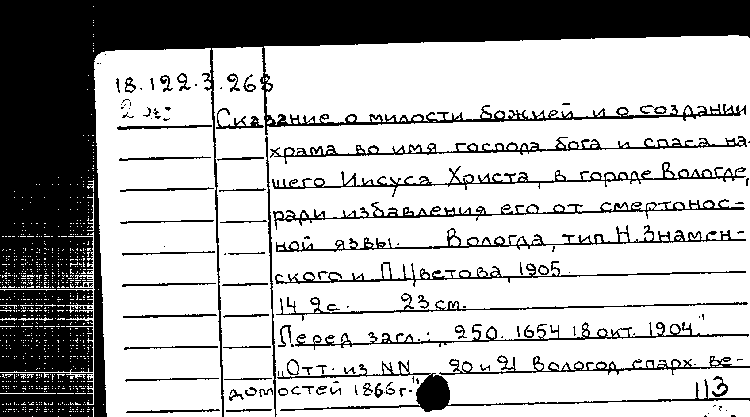 18.122.3.268
2 экз
Сказание о милости божией и о создании
храма во имя господа бога и спаса на-
шего Иисуса Христа, в городе Вологде,
ради избавления его от смертонос-
ной язвы. Вологда, тип. Н. Знамен-
ского и П. Цветова, 1905
14, 2 с. 23 см.
Перед загл.: „250. 1654 18 окт. 1904."
„Отт. из NN 20 и 21 Вологод. епарх. ве-
домостей 1866 г."
113